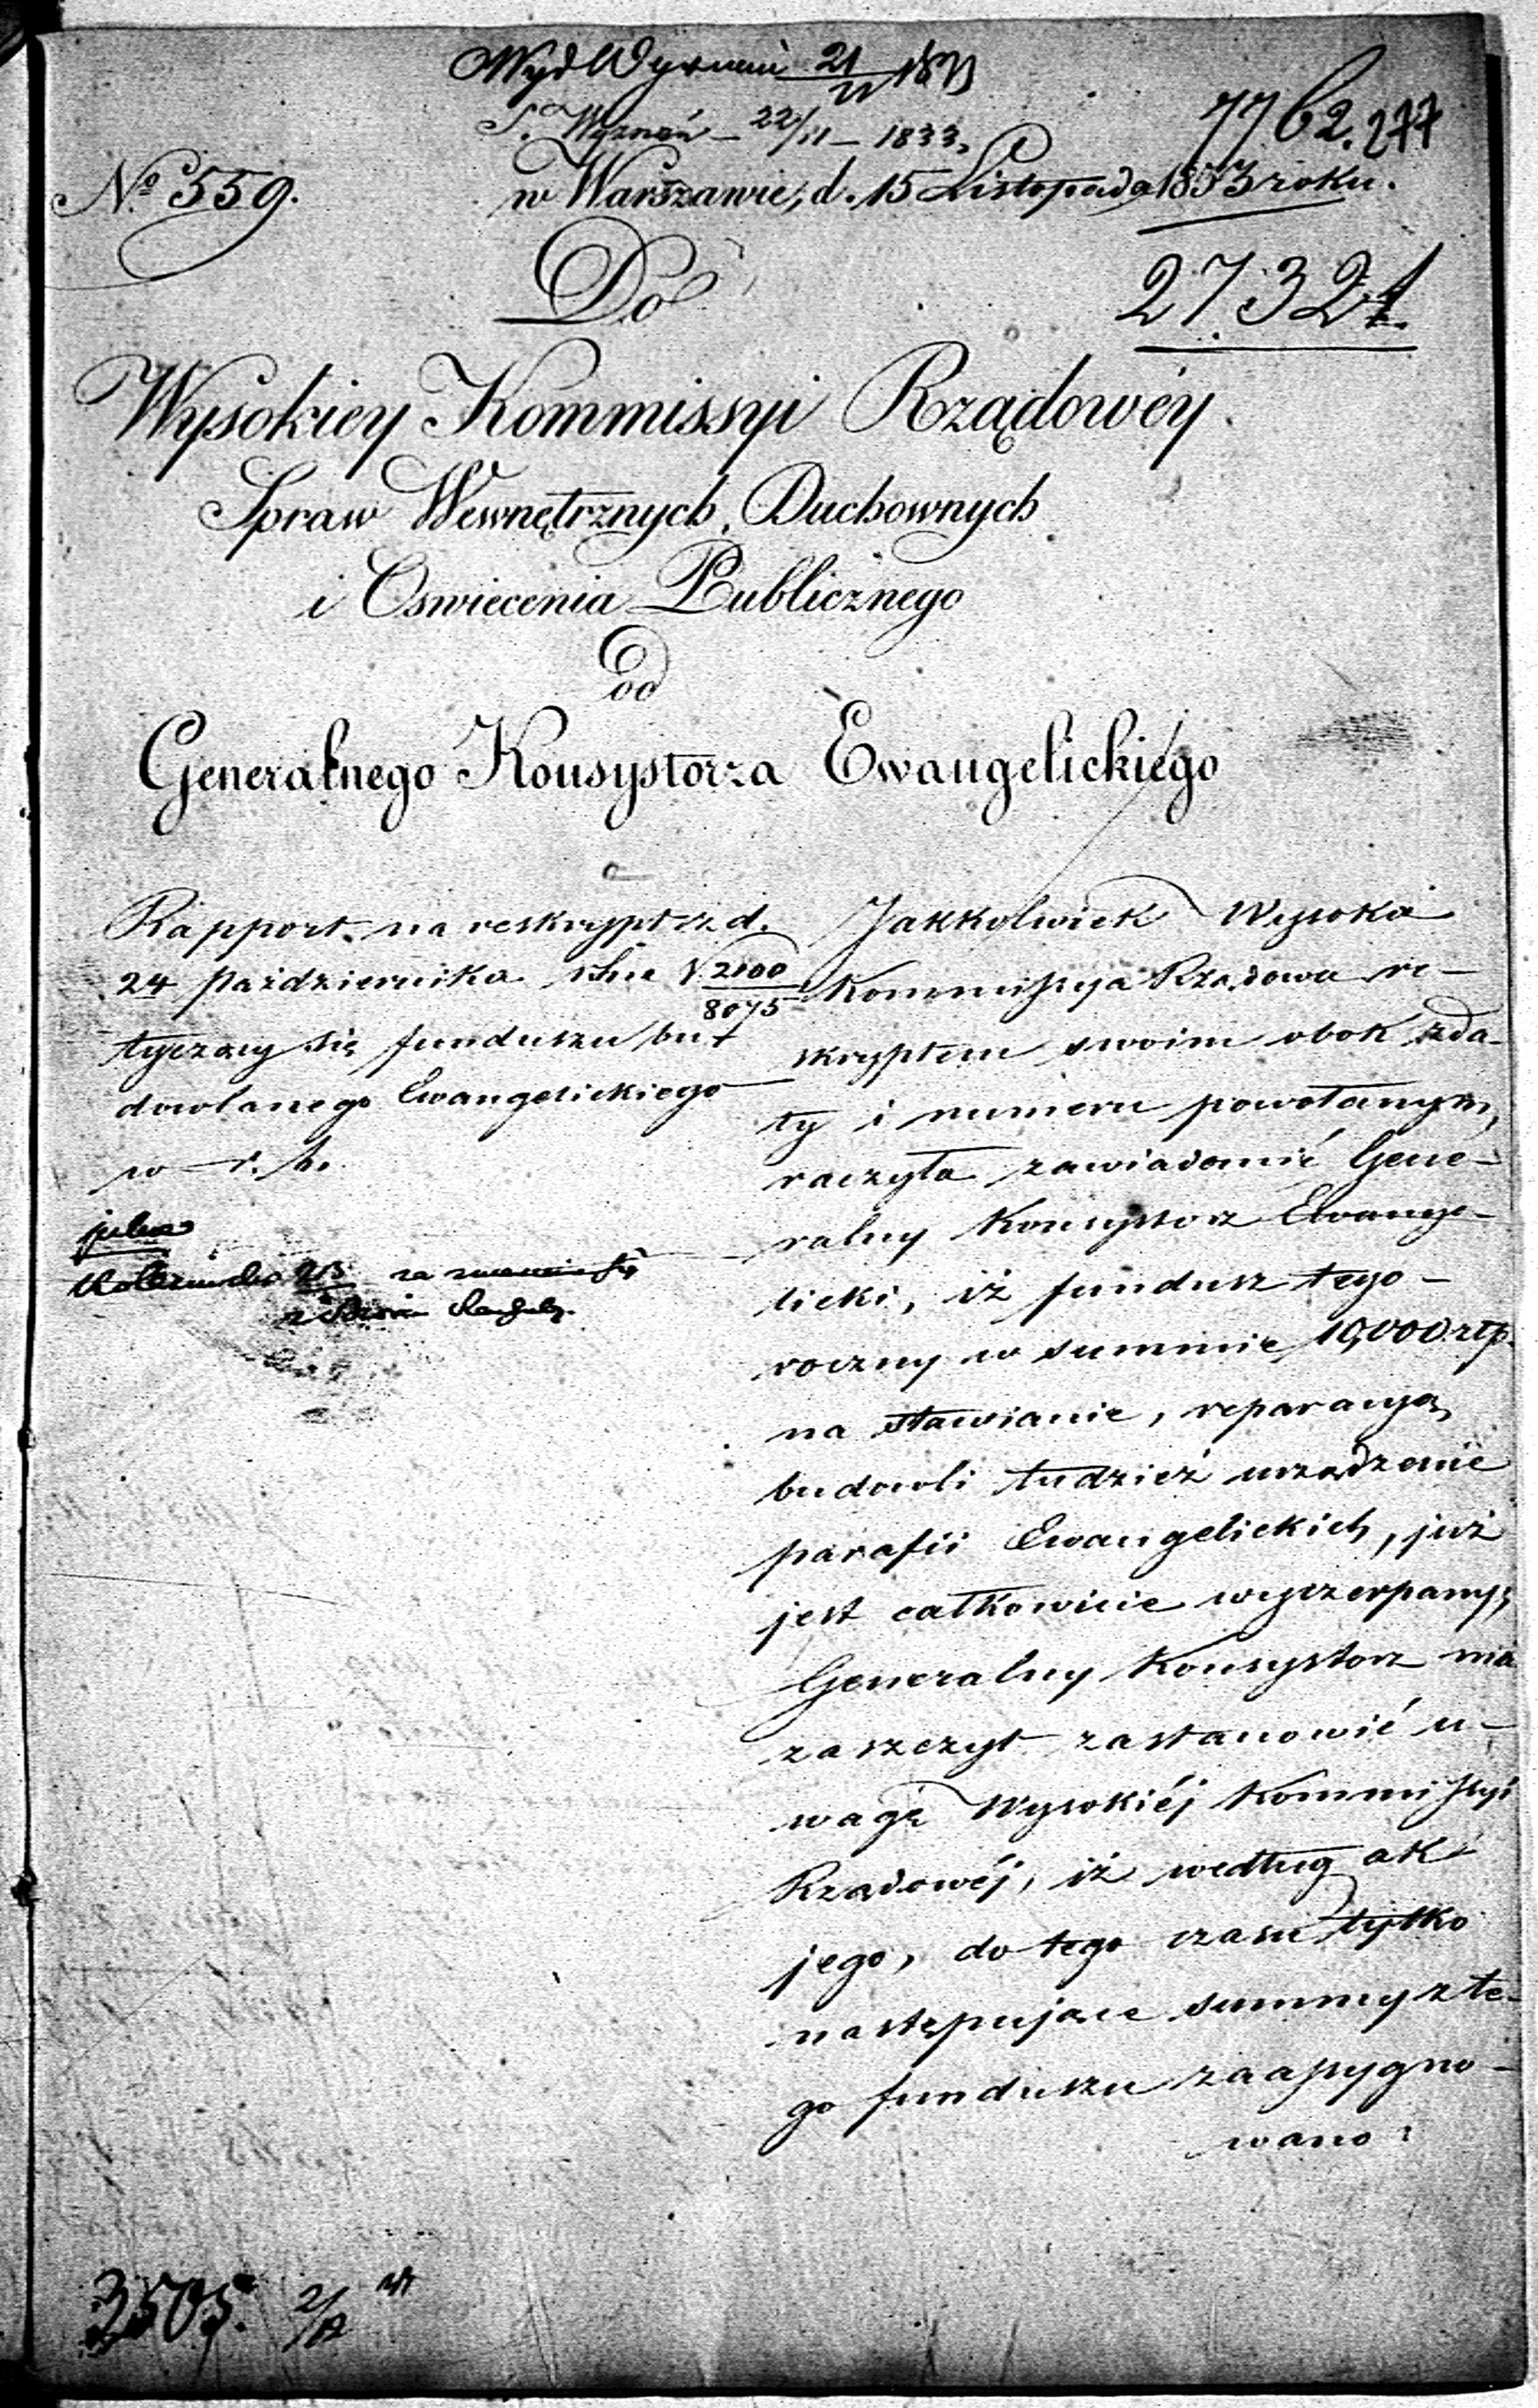 21/11 1833
S. Wyznań – 22/11 – 1833.
7762. 277
No. 559.
w Warszawie, d. 15 Listopada 1833 roku.
Do
27321
Wysokiey Kommissyi Rządowéy
Spraw Wewnętrznych, Duchownych
i Oswiecenia Publicznego
od
Generalnego Konsystorza Ewangelickiego
Rapport na reskrypt z d.
24 Października N 2100/8075
tyczący się funduszu bu-
dowlanego Ewangelickiego
w r. b.
Jakkolwiek Wysoka
Kommissyja Rządowa re-
skryptem swoim obok z da-
ty i numeru powołanym,
raczyła zawiadomić Gene-
ralny Konsystorz Ewange-
licki, iż fundusz tego-
roczny w summie 10,000 złp.
na stawianie, reparacyą
budowli tudzież urządzenie
parafii Ewangelickich, już
jest całkowicie wyczerpany;
Generalny Konsystorz ma
zaszczyt zastanowić u-
wagę Wysokiéj Kommissyi
Rządowéj, iż według akt
jego, do tego czasu tylko
następujące summy z te-
go funduszu zaassygno-
wano:
3505. 2/12